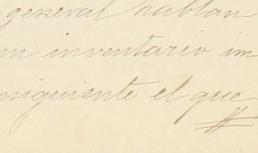 general hablan
un inventario im
nsiguiente el que